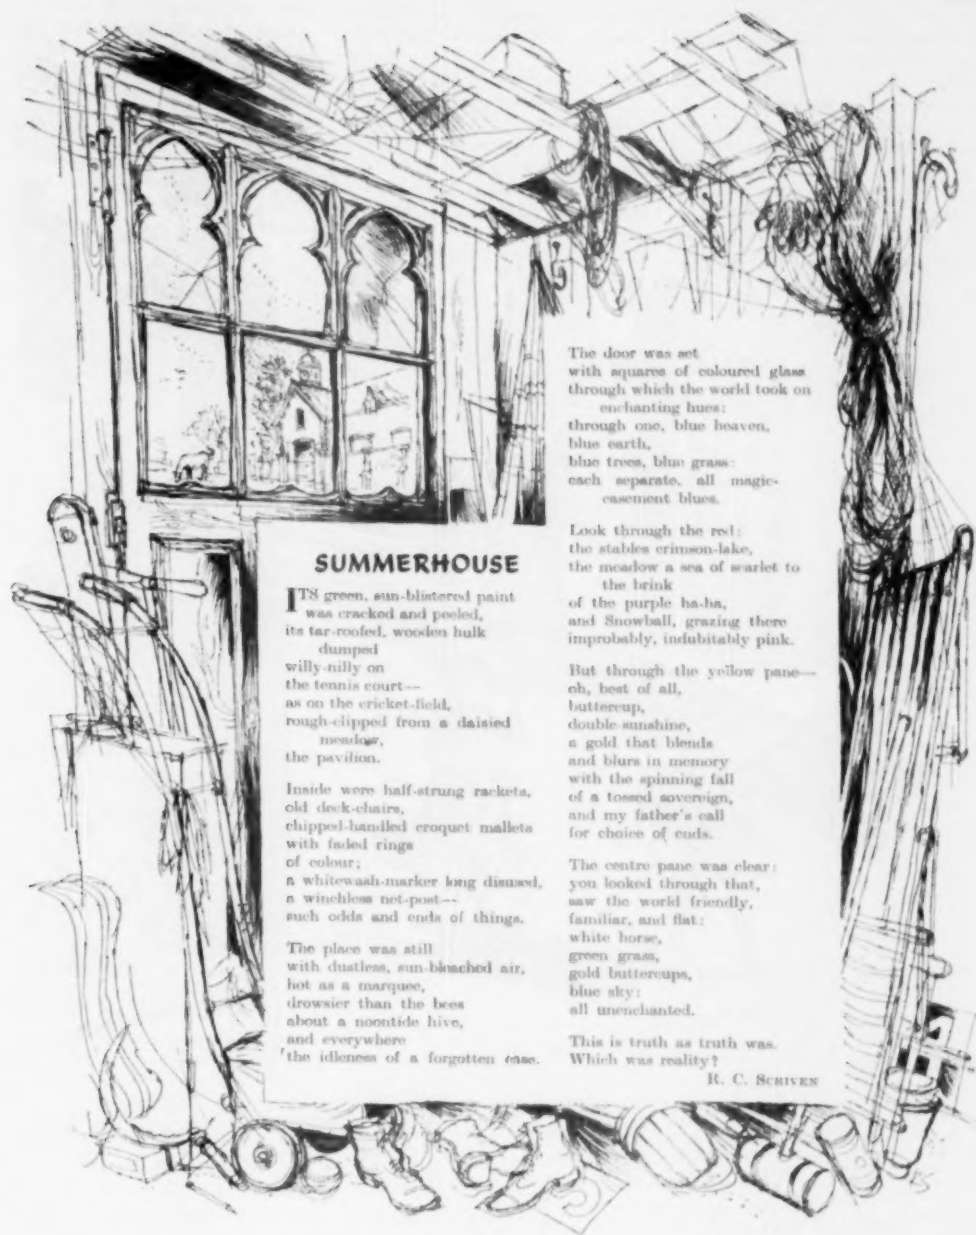 SUMMERHOUSE
ITS green, sun-blistered paint
was cracked and peeled,
its tar-roofed, wooden hulk
dumped
willy-nilly on
the tennis court—
as on the cricket-field,
rough-clipped from a daisied
meadow,
the pavilion.
Inside were half-strung rackets,
old deck-chairs,
chipped-handled croquet mallets
with faded rings
of colour;
a whitewash-marker long disused,
a winchless net-post—
such odds and ends of things.
The place was still
with dustless, sun-bleached air,
hot as a marquee,
drowsier than the bees
about a noontide hive,
and everywhere
the idleness of a forgotten ease.
The door was set
with squares of coloured glass
through which the world took on
enchanting hues:
through one, blue heaven,
blue earth,
blue trees, blue grass:
each separate, all magic-
casement blues.
Look through the red:
the stables crimson-lake,
the meadow a sea of scarlet to
the brink
of the purple ha-ha,
and Snowball, grazing there
improbably, indubitably pink.
But through the yellow pane—
oh, best of all,
buttercup,
double sunshine,
a gold that blends
and blurs in memory
with the spinning fall
of a tossed sovereign,
and my father's call
for choice of ends.
The centre pane was clear:
you looked through that,
saw the world friendly,
familiar, and flat:
white horse,
green grass,
gold buttercups,
blue sky:
all unenchanted.
This is truth as truth was.
Which was reality?
R. C. SCRIVEN